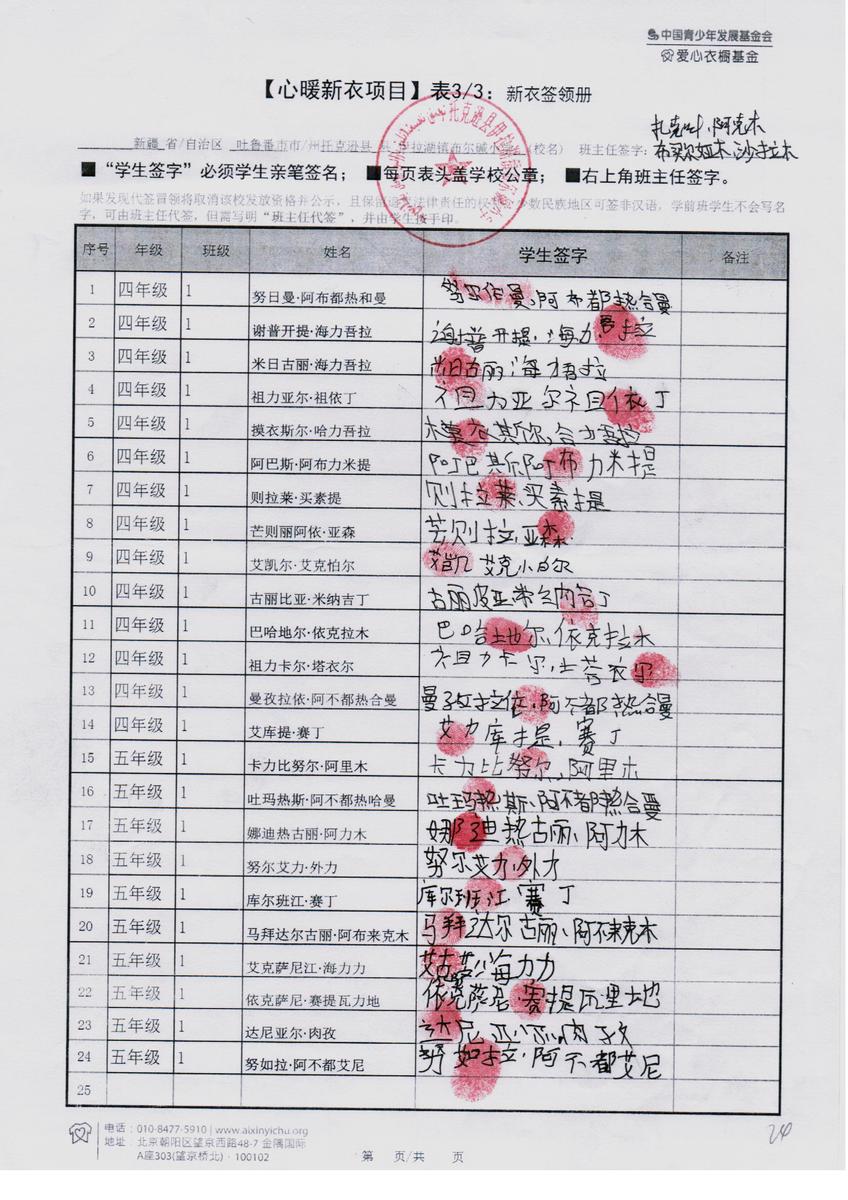 中国青少年发展基金会
爱心衣橱基金
【心暖新衣项目】表3/3：新衣签领册
扎克叶·阿克木
新疆 省/自治区 吐鲁番市市/州托克逊县 县 伊拉湖镇布尔碱小学（校名） 班主任签字：布买尔亚木·沙拉木
■“学生签字”必须学生亲笔签名； ■每页表头盖学校公章； ■右上角班主任签字。
如果发现代签冒领将取消该校发放资格并公示，且保留追究法律责任的权利。少数民族地区可签非汉语。学前班学生不会写名
字，可由班主任代签，但需写明“班主任代签”，并由学生按手印。
序号 年级 班级 姓名 学生签字 备注
1 四年级 1 努日曼·阿布都热和曼 努日曼，阿布都热合曼
2 四年级 1 谢普开提·海力吾拉 谢普开提·海力吾拉
3 四年级 1 米日古丽·海力吾拉 日古丽·海力吾拉
4 四年级 1 祖力亚尔·祖依丁 祖力亚尔祖依丁
5 四年级 1 摸衣斯尔·哈力吾拉
6 四年级 1 阿巴斯·阿布力米提 阿巴斯阿布力米提
7 四年级 1 则拉莱·买素提 则拉莱·买素提
8 四年级 1 芒则丽阿依·亚森 芒则拉·亚森
9 四年级 1 艾凯尔·艾克怕尔 艾凯 艾克
10 四年级 1 古丽比亚·米纳吉丁 古丽皮亚
11 四年级 1 巴哈地尔·依克拉木 巴哈地尔·依克拉木
12 四年级 1 祖力卡尔·塔衣尔 祖力卡尔·塔衣尔
13 四年级 1 曼孜拉依·阿不都热合曼 曼孜拉依·阿不都热合曼
14 四年级 1 艾库提·赛丁 艾力库提，赛丁
15 五年级 1 卡力比努尔·阿里木 卡力比努尔，阿里木
16 五年级 1 吐玛热斯·阿不都热哈曼 吐玛热斯·阿不都热合曼
17 五年级 1 娜迪热古丽·阿力木 娜迪热古丽·阿力木
18 五年级 1 努尔艾力·外力 努尔艾力·外力
19 五年级 1 库尔班江·赛丁 库尔班江·赛丁
20 五年级 1 马拜达尔古丽·阿布来克木 马拜达尔古丽·阿不来克木
21 五年级 1 艾克萨尼江·海力力 海力力
22 五年级 1 依克萨尼·赛提瓦力地 依克萨尼·赛提瓦里地
23 五年级 1 达尼亚尔·肉孜 达尼亚尔肉孜
24 五年级 1 努如拉·阿不都艾尼 努如拉·阿不都艾尼
25
电话：010-8477-5910 | www.aixinyichu.org
地址：北京朝阳区望京西路48-7 金隅国际
A座303(望京桥北)·100102
第 页/共 页
24